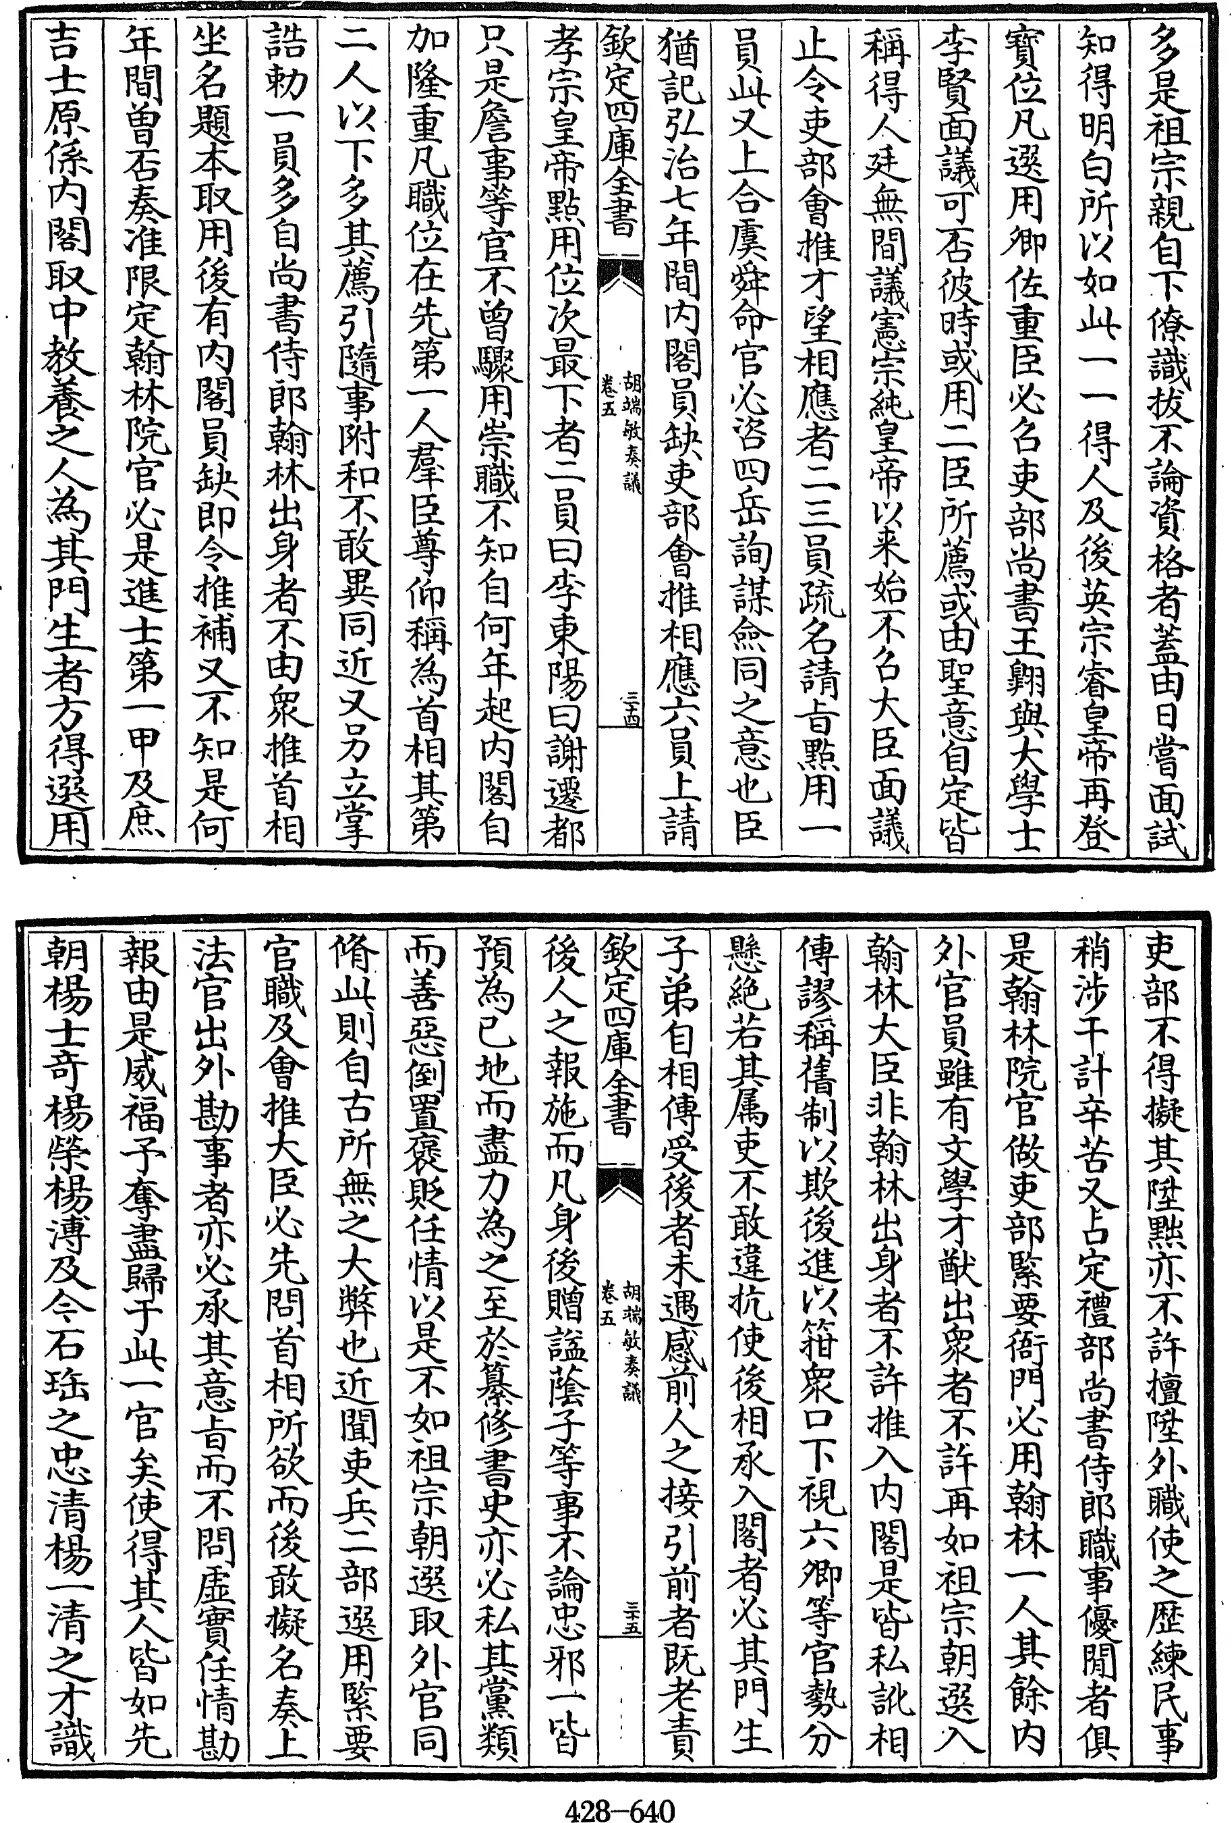 多是祖宗親自下僚識拔不論資格者蓋由日嘗面試
知得明白所以如此一一得人及後英宗睿皇帝再登
寳位凡選用卿佐重臣必名吏部尚書王翺與大學士
李賢面議可否彼時或用二臣所薦或由聖意自定皆
稱得人廷無間議憲宗純皇帝以来始不名大臣面議
止令吏部會推才望相應者二三員疏名請㫖點用一
員此又上合虞舜命官必咨四岳詢謀僉同之意也臣
猶記弘治七年間内閣員缺吏部會推相應六員上請
欽定四庫全書
胡端敏奏議
卷五
三十四
孝宗皇帝點用位次最下者二員曰李東陽曰謝遷都
只是詹事等官不曾驟用崇職不知自何年起内閣自
加隆重凡職位在先第一人羣臣尊仰稱為首相其第
二人以下多其薦引隨事附和不敢異同近又另立掌
誥勅一員多自尚書侍郎翰林出身者不由衆推首相
坐名題本取用後有内閣員缺即令推補又不知是何
年間曾否奏准限定翰林院官必是進士第一甲及庶
吉士原係内閣取中教養之人為其門生者方得選用
吏部不得擬其陞黜亦不許擅陞外職使之歴練民事
稍涉干計辛苦又占定禮部尚書侍郎職事優閒者俱
是翰林院官做吏部緊要衙門必用翰林一人其餘内
外官員雖有文學才猷出衆者不許再如祖宗朝選入
翰林大臣非翰林出身者不許推入内閣是皆私訛相
傳謬稱舊制以欺後進以箝衆口下視六卿等官勢分
懸絶若其属吏不敢違抗使後相承入閣者必其門生
子弟自相傳受後者未遇感前人之接引前者既老責
欽定四庫全書
胡端敏奏議
卷五
三十五
後人之報施而凡身後贈諡䕃子等事不論忠邪一皆
預為己地而盡力為之至於纂修書史亦必私其黨類
而善惡倒置褒貶任情以是不如祖宗朝選取外官同
脩此則自古所無之大弊也近聞吏兵二部選用緊要
官職及會推大臣必先問首相所欲而後敢擬名奏上
法官出外勘事者亦必承其意㫖而不問虚實任情勘
報由是威福予奪盡歸于此一官矣使得其人皆如先
朝楊士奇楊榮楊溥及今石珤之忠清楊一清之才識
428—640